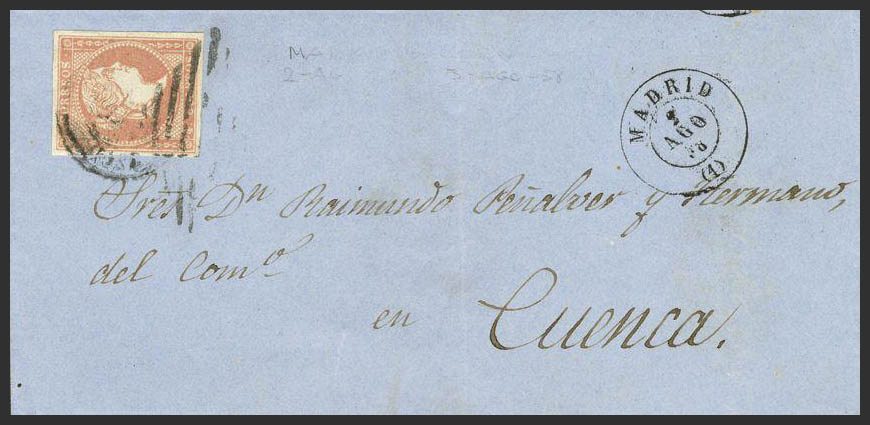 MADRID
AGO
58
(1)
Sres Dn Raimundo Peñalver y Hermano,
del Como.
en
Cuenca.